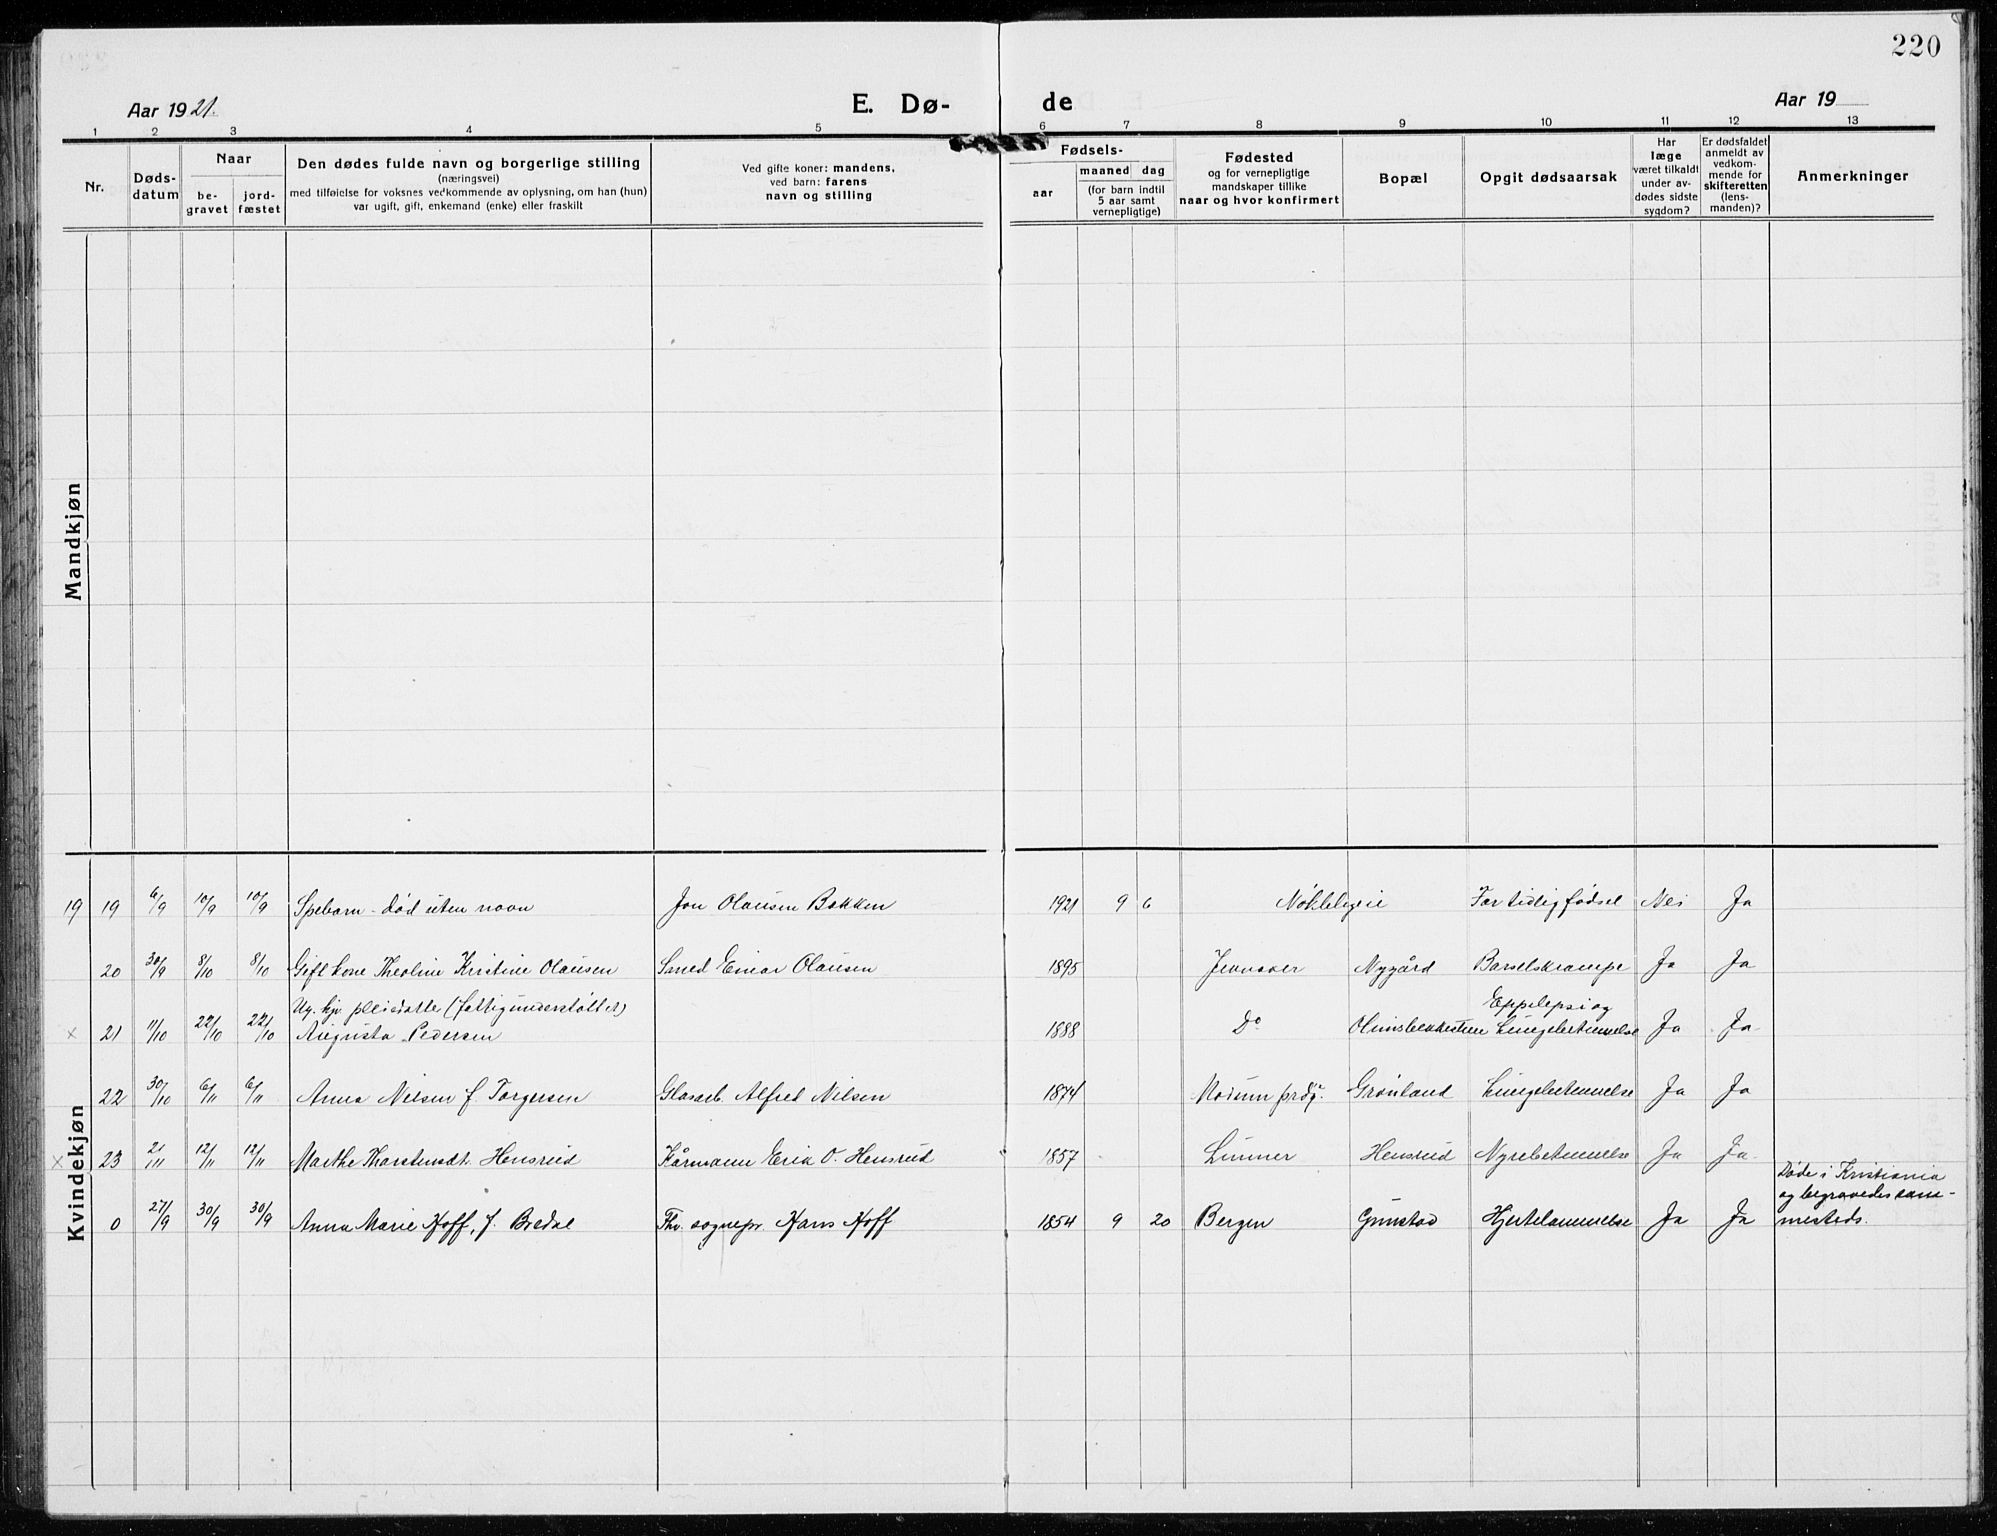 220
Aar 1921.
E. Dø-
de
Aar 19
1 2 3 4 5 6 7 8 9 10 11 12 13
Nr.
Døds-
datum
Naar
be-
gravet
jord-
fæstet
Den dødes fulde navn og borgerlige stilling
(næringsvei)
med tilføielse for voksnes vedkommende av oplysning, om han (hun)
var ugift, gift, enkemand (enke) eller fraskilt
Ved gifte koner: mandens,
ved barn: farens
navn og stilling
Fødsels-
aar
maaned dag
(for barn indtil
5 aar samt
vernepligtige)
Fødested
og for vernepligtige
mandskaper tillike
naar og hvor konfirmert
Bopæl
Opgit dødsaarsak
Har
læge
været tilkaldt
under av-
dødes sidste
sygdom?
Er dødsfaldet
anmeldt av
vedkom-
mende for
skifteretten
(lens-
manden)?
Anmerkninger
Mandkjøn
Kvindekjøn
19 19 6/9 10/9 10/9 Spebarn - død uten navn Jon Olausen Bakken 1921 9 6 For tidlig fødsel Nei Ja
20 30/9 8/10 8/10 Gift kone Theoline Kristine Olausen Smed Einar Olausen 1895 Jevnaker Nygård Barselskrampe Ja Ja
Ug. (fattigunderstøttet) Eppilepsi og
x 21 11/10 22/10 22/10 Augusta Pedersen 1888 Do Lungebetennelse Ja Ja
22 30/10 6/11 6/11 Anna Nilsen f. Torgersen Glasarb. Alfred Nilsen 1874 Modum prdgj. Grønland Lungebetennelse Ja Ja
x 23 2/11 12/11 12/11 Marthe Thorstensdt. Hensrud Kårmann Erik O. Hensrud 1857 Lunner Hensrud Nyrebetennelse Ja Ja
Døde i Kristiania
og begravedes sam-
0 27/9 30/9 30/9 Anna Marie Hoff, f. Bredal Fhv. sognepr. Hans Hoff 1854 9 20 Bergen Grinstad Hjertelammelse Ja Ja mesteds.